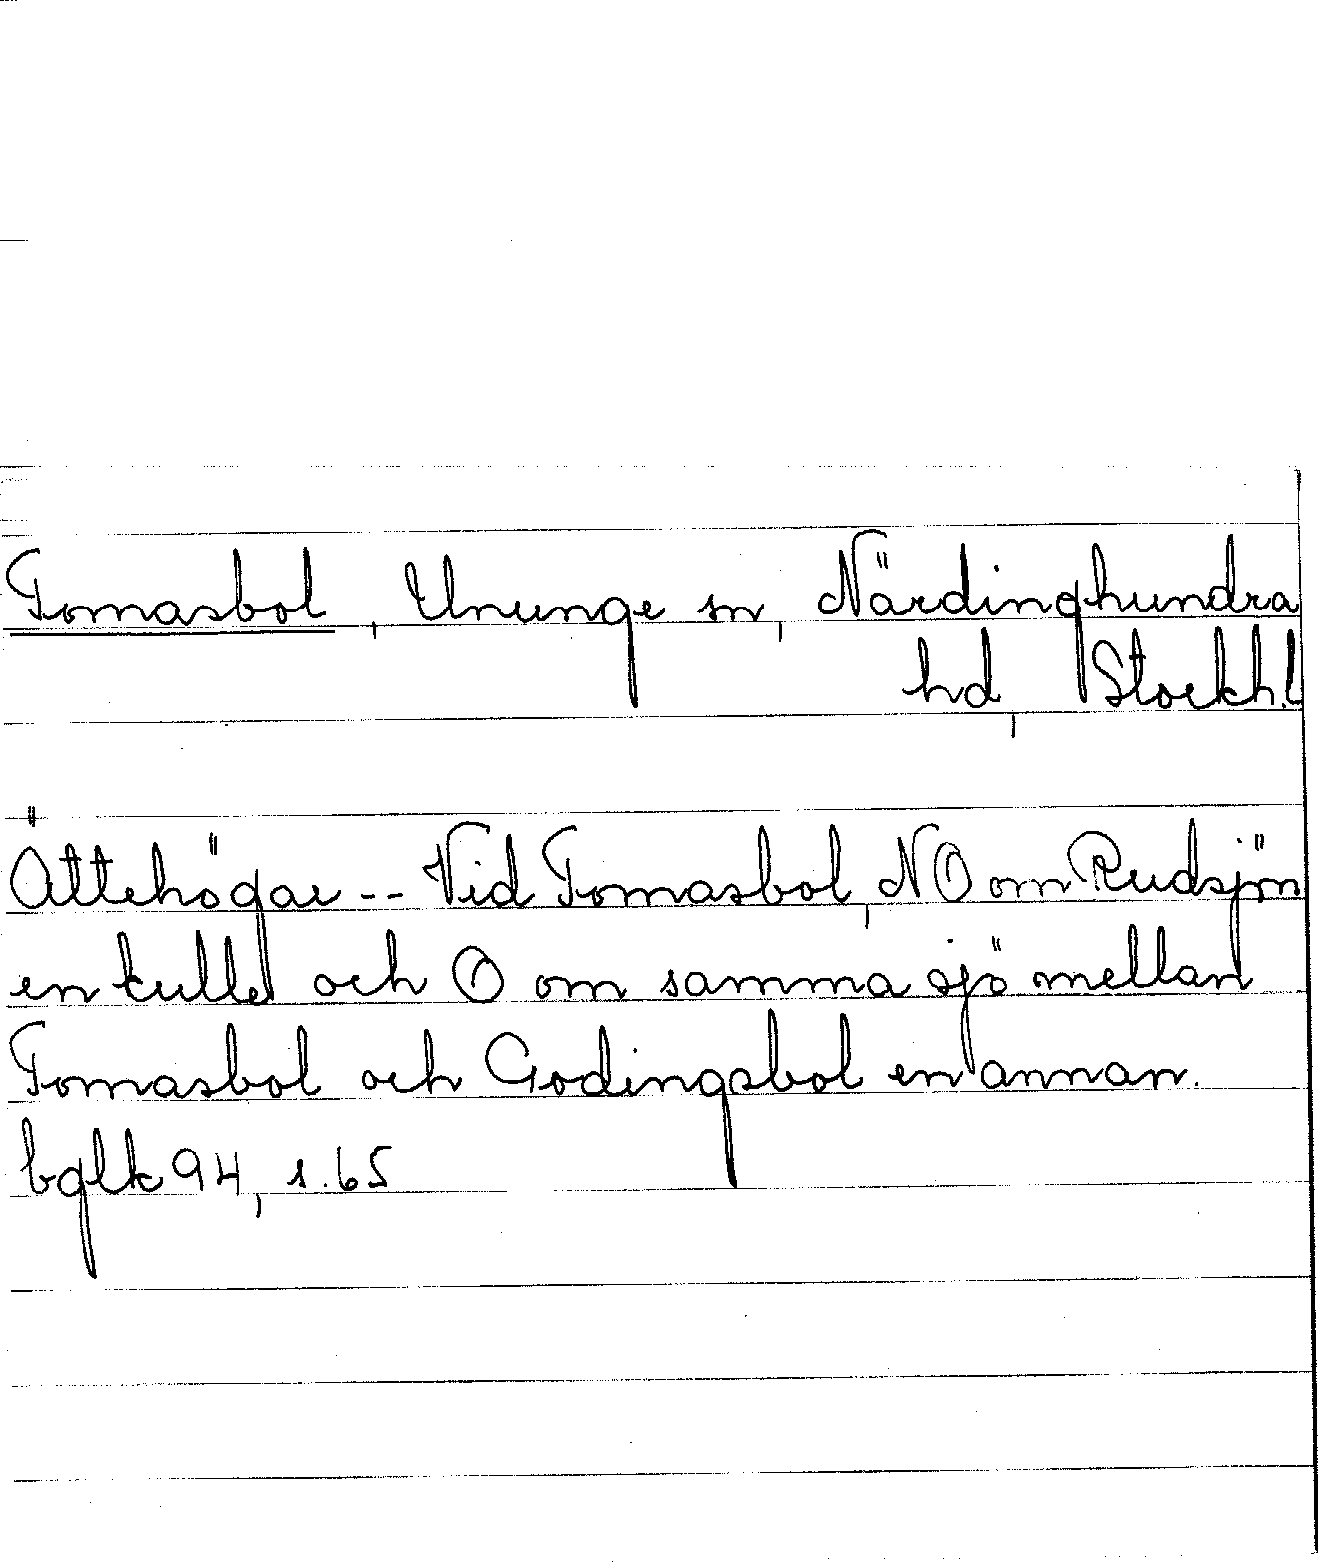 Tomasbol, Ununge sn, Närdinghundra
hd, Stockh.l
Ättehögar -- Vid Tomasbol, NO om Rudsjön
en kulle och O om samma sjö mellan
Tomasbol och Godingsbol en annan.
bglk 94, s. 65